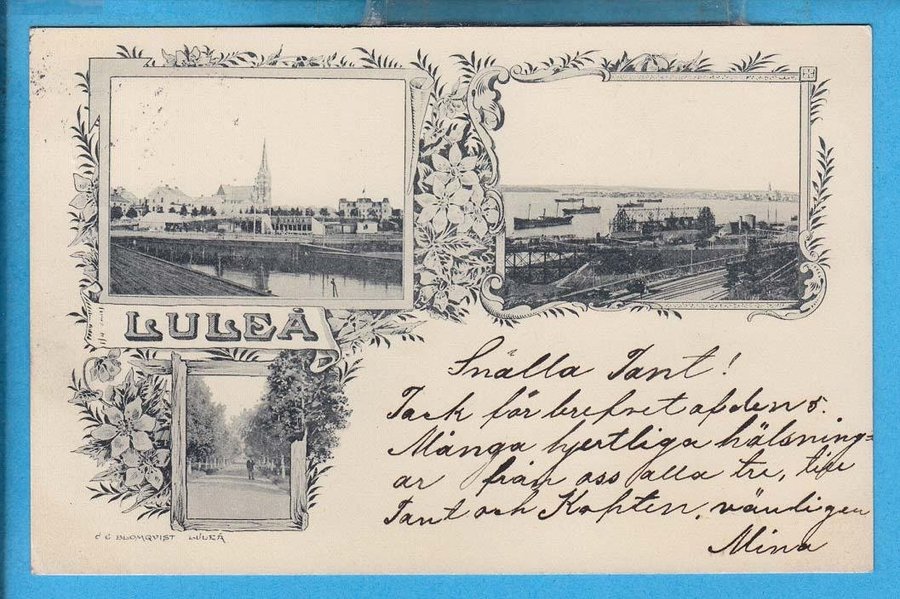 LULEÅ
Snälla Tant!
Tack för brefvet af den 5.
Många hjertliga hälsning=
ar från oss alla tre, till
Tant och Kapten, vänligen
Mina
C G BLOMQVIST LULEÅ